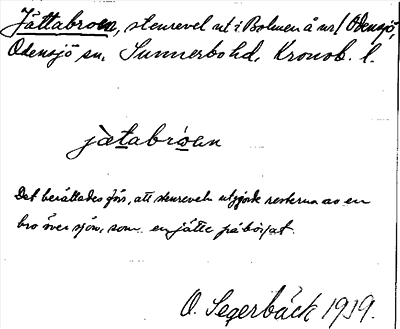 Jättabroen, stenrevel ut i Bolmen å nr 1 Odensjö,
Odensjö sn. Sunnerbo hd, Kronob. l.
jätabroen
Det berättades förr, att stenreveln utgjorde resterna av en
bro över sjön, som en jätte påbörjat.
O. Segerbäck 1919.